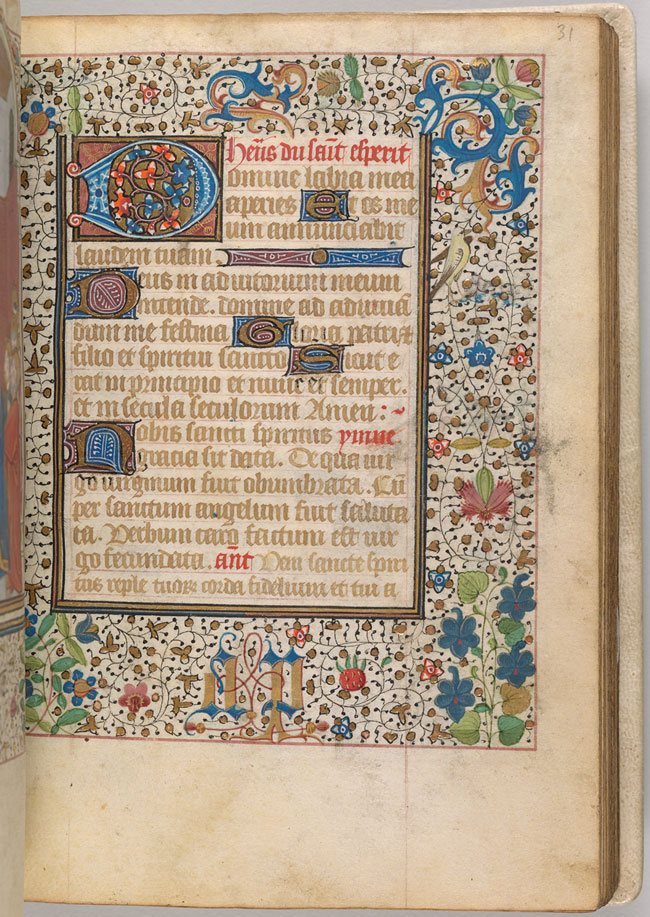 31
Heur̄s du saīt esperit
Domine labia mea
aperies Et os me
um annunciabit
laudem tuam
Deus in adiutorium meum
intende. domine ad adiuuā
dum me festina Gloria patri et
filio et spiritui sancto Sicut e
rat in principio et nunc et semper.
et in secula seculorum Amen :~
Nobis sancti spiritus ymne.
gracia sit data. De qua uir
go uirginum fuit obumbrata. Cū
per sanctum angelum fuit saluta
ta. Verbum caro factum est uir
go fecundata. an̄t Veni sancte spiri
tus reple tuorꝝ corda fidelium et tui a